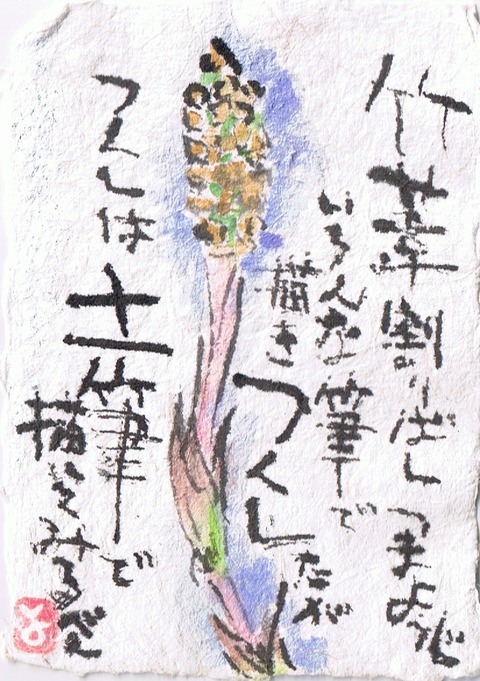 竹葦割りばしつまようじ
いろんな筆で
描きつくしたが
つくしは土筆で
描いてみるべえ